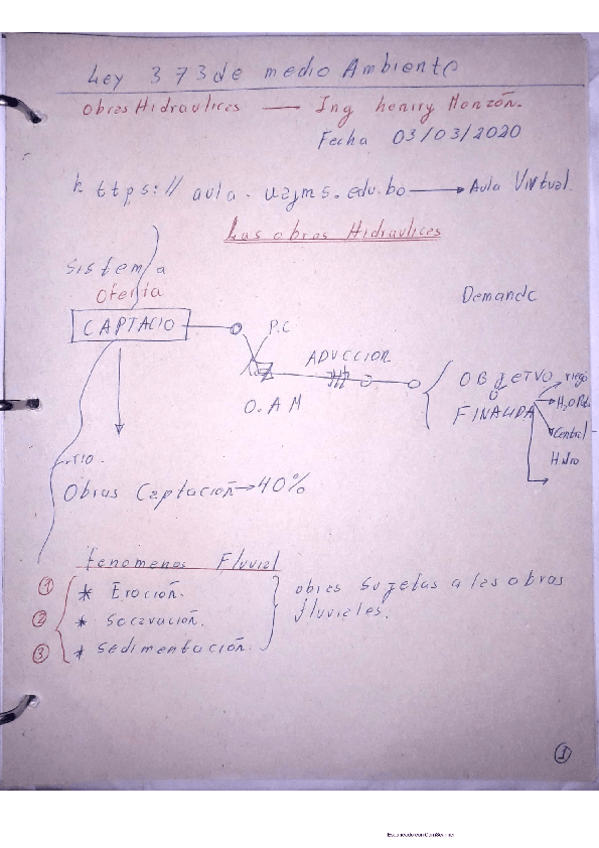 Ley 373 de medio Ambiente
Obras Hidraulices — Ing henrry Monzón.
Fecha 03/03/2020
https:// aula. uajms. edu.bo → Aula Virtual.
Las obras Hidraulices
Sistema
Oferta
Demanda
CAPTACIO
P.C
ADUCCION
O.A.M
OBJETIVO
O
FINALIDA
riego
H2O Pot.
Central
Hidro
rio.
Obras Captación → 40%
fenomenos Fluvial
① * Eroción.
② * Socavación.
③ * Sedimentación.
obras Sujetas a las obras
fluvieles.
1
Escaneado con CamScanner